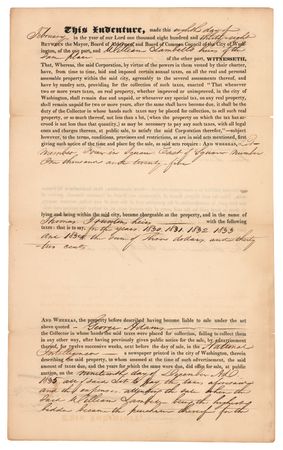 This Indenture, made this eighth day of
February in the year of our Lord one thousand eight hundred and thirty eight
BETWEEN the Mayor, Board of Aldermen, and Board of Common Council of the City of Washington,
of the one part, and William
of the other part, WITNESSETH,
That, Whereas, the said Corporation, by virtue of the powers in them vested by their charter,
have, from time to time, laid and imposed certain annual taxes, on all the real and personal
assessable property within the said city, agreeably to the several assessments thereof, and
have by sundry acts, providing for the collection of such taxes, enacted "That whenever
two or more years taxes, on real property, whether improved or unimproved, in the city of
Washington, shall remain due and unpaid, or whenever any special tax, on any such property,
shall remain unpaid for two or more years, after the same shall have become due, it shall be the
duty of the Collector in whose hands such taxes may be placed for collection, to sell such real
property, or so much thereof, not less than a lot, (when the property on which the tax has accrued
is not less than that quantity,) as may be necessary to pay any such taxes, with all legal
costs and charges thereon, at public sale, to satisfy the said Corporation therefor,"—subject
however, to the terms, conditions, provisoes and restrictions, as are in said acts mentioned, first
giving such notice of the time and place for the sale, as said acts require: AND WHEREAS, Lot
number Four in Square East of Square number
One thousand and twenty five
lying and being within the said city, became chargeable as the property, and in the name of
Thomas heirs with the following
taxes: that is to say: for the years 1830, 1831 1832 1833
and the sum of dollars and thirty
two cents
AND WHEREAS, the property before described having become liable to sale under the act
above quoted George Adams
the Collector in whose hands the said taxes were placed for collection, failing to collect them
in any other way, after having previously given public notice for the sale, by advertisement
thereof, for twelve successive weeks, next before the day of sale, in the National
Intelligencer a newspaper printed in the city of Washington, therein
describing the said property, to whom assessed at the time of such advertisement, the said
amount of taxes due, and the years for which the same were due, did offer for sale, at public
auction, on the nineteenth day of December A.D.
1835 said Lot to pay the taxes aforesaid
and the expenses attending the sale when the
said William being the highest
bidder became the purchaser thereof for the